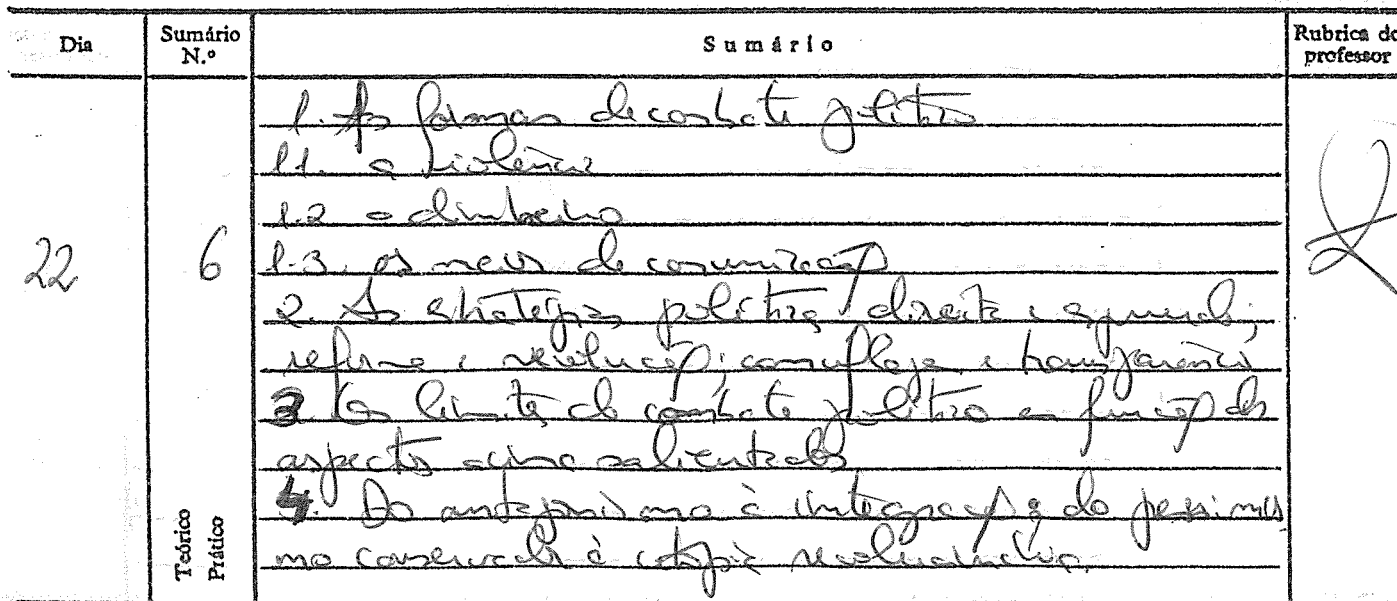 Dia Sumário N.º Sumário Rubrica do professor
1. As formas de combate político
1.1. a violência
1.2 o dinheiro
22 6 1.3. os meios de comunicação
2. As estratégias políticas direita e esquerda;
reforma e revolução; camuflagem e transparência
3 Os limites do combate político em função dos
aspectos acima salientados
4. Do antagonismo à integração e do pessimis
mo conservador à utopia revolucionária.
Teórico
Prático